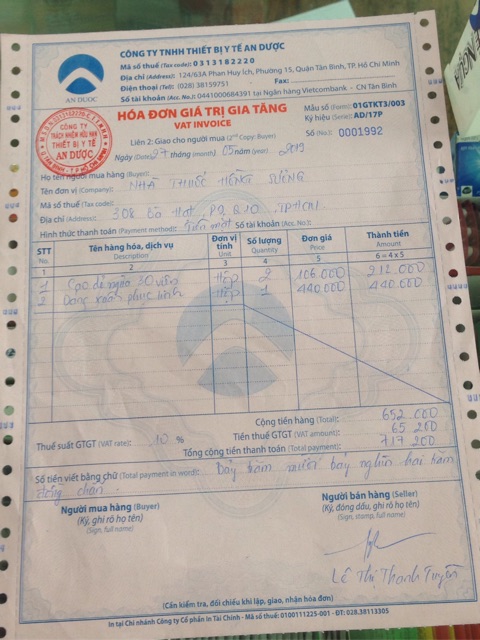 CÔNG TY TNHH THIẾT BỊ Y TẾ AN DƯỢC
Mã số thuế (Tax code): 0313182220
Địa chỉ (Address): 124/63A Phan Huy Ích, Phường 15, Quận Tân Bình, TP.Hồ Chí Minh
Điện thoại (Tel): (028) 38159751 Fax:
Số tài khoản (Acc. No.): 0441000684391 tại Ngân hàng Vietcombank - CN Tân Bình
AN DƯỢC
HÓA ĐƠN GIÁ TRỊ GIA TĂNG
VAT INVOICE
Mẫu số (Form): 01GTKT3/003
Ký hiệu (Serial): AD/17P
Số (No.): 0001992
Liên 2: Giao cho người mua (2nd Copy: Buyer)
Ngày (Date) 27 tháng (month) 05 năm (year) 2019
CÔNG TY
TRÁCH NHIỆM HỮU HẠN
THIẾT BỊ Y TẾ
AN DƯỢC
Họ tên người mua hàng (Buyer):
Tên đơn vị (Company): NHÀ THUỐC HỒNG SƯƠNG
Mã số thuế (Tax code):
Địa chỉ (Address): 308 Bà Hạt, P9, Q10, TPHCM
Hình thức thanh toán (Payment method): Tiền mặt Số tài khoản (Acc. No.):
STT No. Tên hàng hóa, dịch vụ Description Đơn vị tính Unit Số lượng Quantity Đơn giá Price Thành tiền Amount
1 2 3 4 5 6 = 4 x 5
1 30 viên Hộp 2 106.000 212.000
2 Hộp 1 440.000 440.000
Cộng tiền hàng (Total): 652 000
Thuế suất GTGT (VAT rate): 10 % Tiền thuế GTGT (VAT amount): 65 200
Tổng cộng tiền thanh toán (Total payment): 717 200
Số tiền viết bằng chữ (Total payment in word): Bảy trăm mười bảy nghìn hai trăm
đồng chẵn.
Người mua hàng (Buyer) Người bán hàng (Seller)
(Ký, ghi rõ họ tên) (Ký, đóng dấu, ghi rõ họ tên)
Sign, full name) (Sign, stamp, full name)
Lê Thị Thanh Tuyền
(Cần kiểm tra, đối chiếu khi lập, giao, nhận hóa đơn)
In tại Chi nhánh Công ty Cổ phần In Tài Chính - Mã số thuế: 0100111225-001 - ĐT: 028.38113305